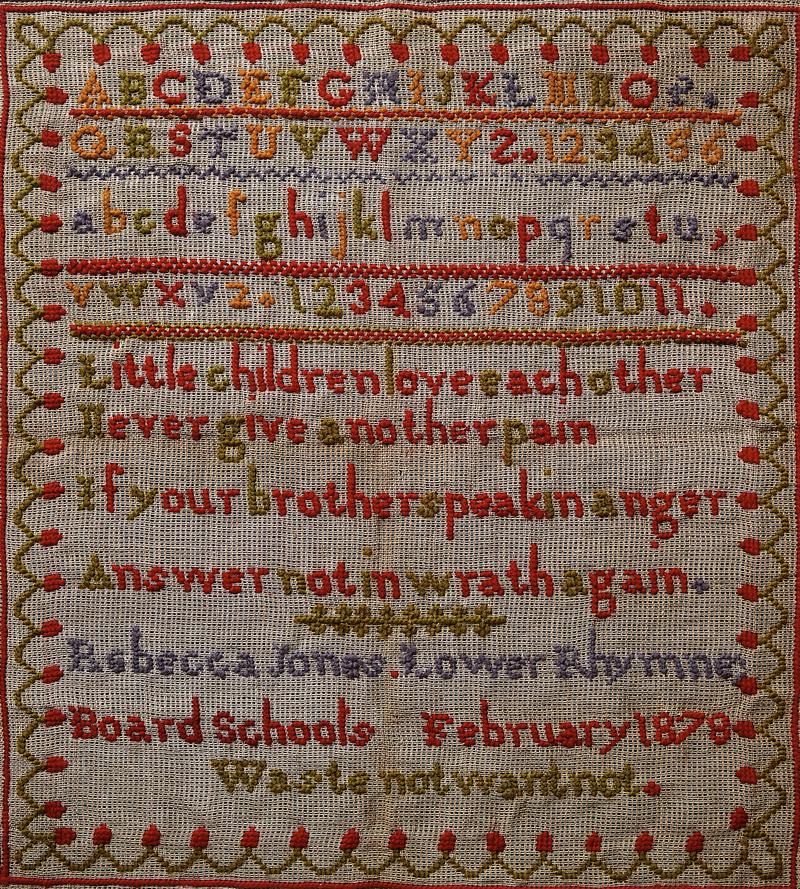 ABCDEFGHIJKLMNOP.
QRSTUVWXYZ.123456
abcdefghijklmnopqrstu,
vwxyz.1234567891011.
Little children love each other
Never give another pain
If your brother speak in anger
Answer not in wrath again.
Rebecca Jones. Lower Rhymney
Board Schools February 1878
Waste not want not.